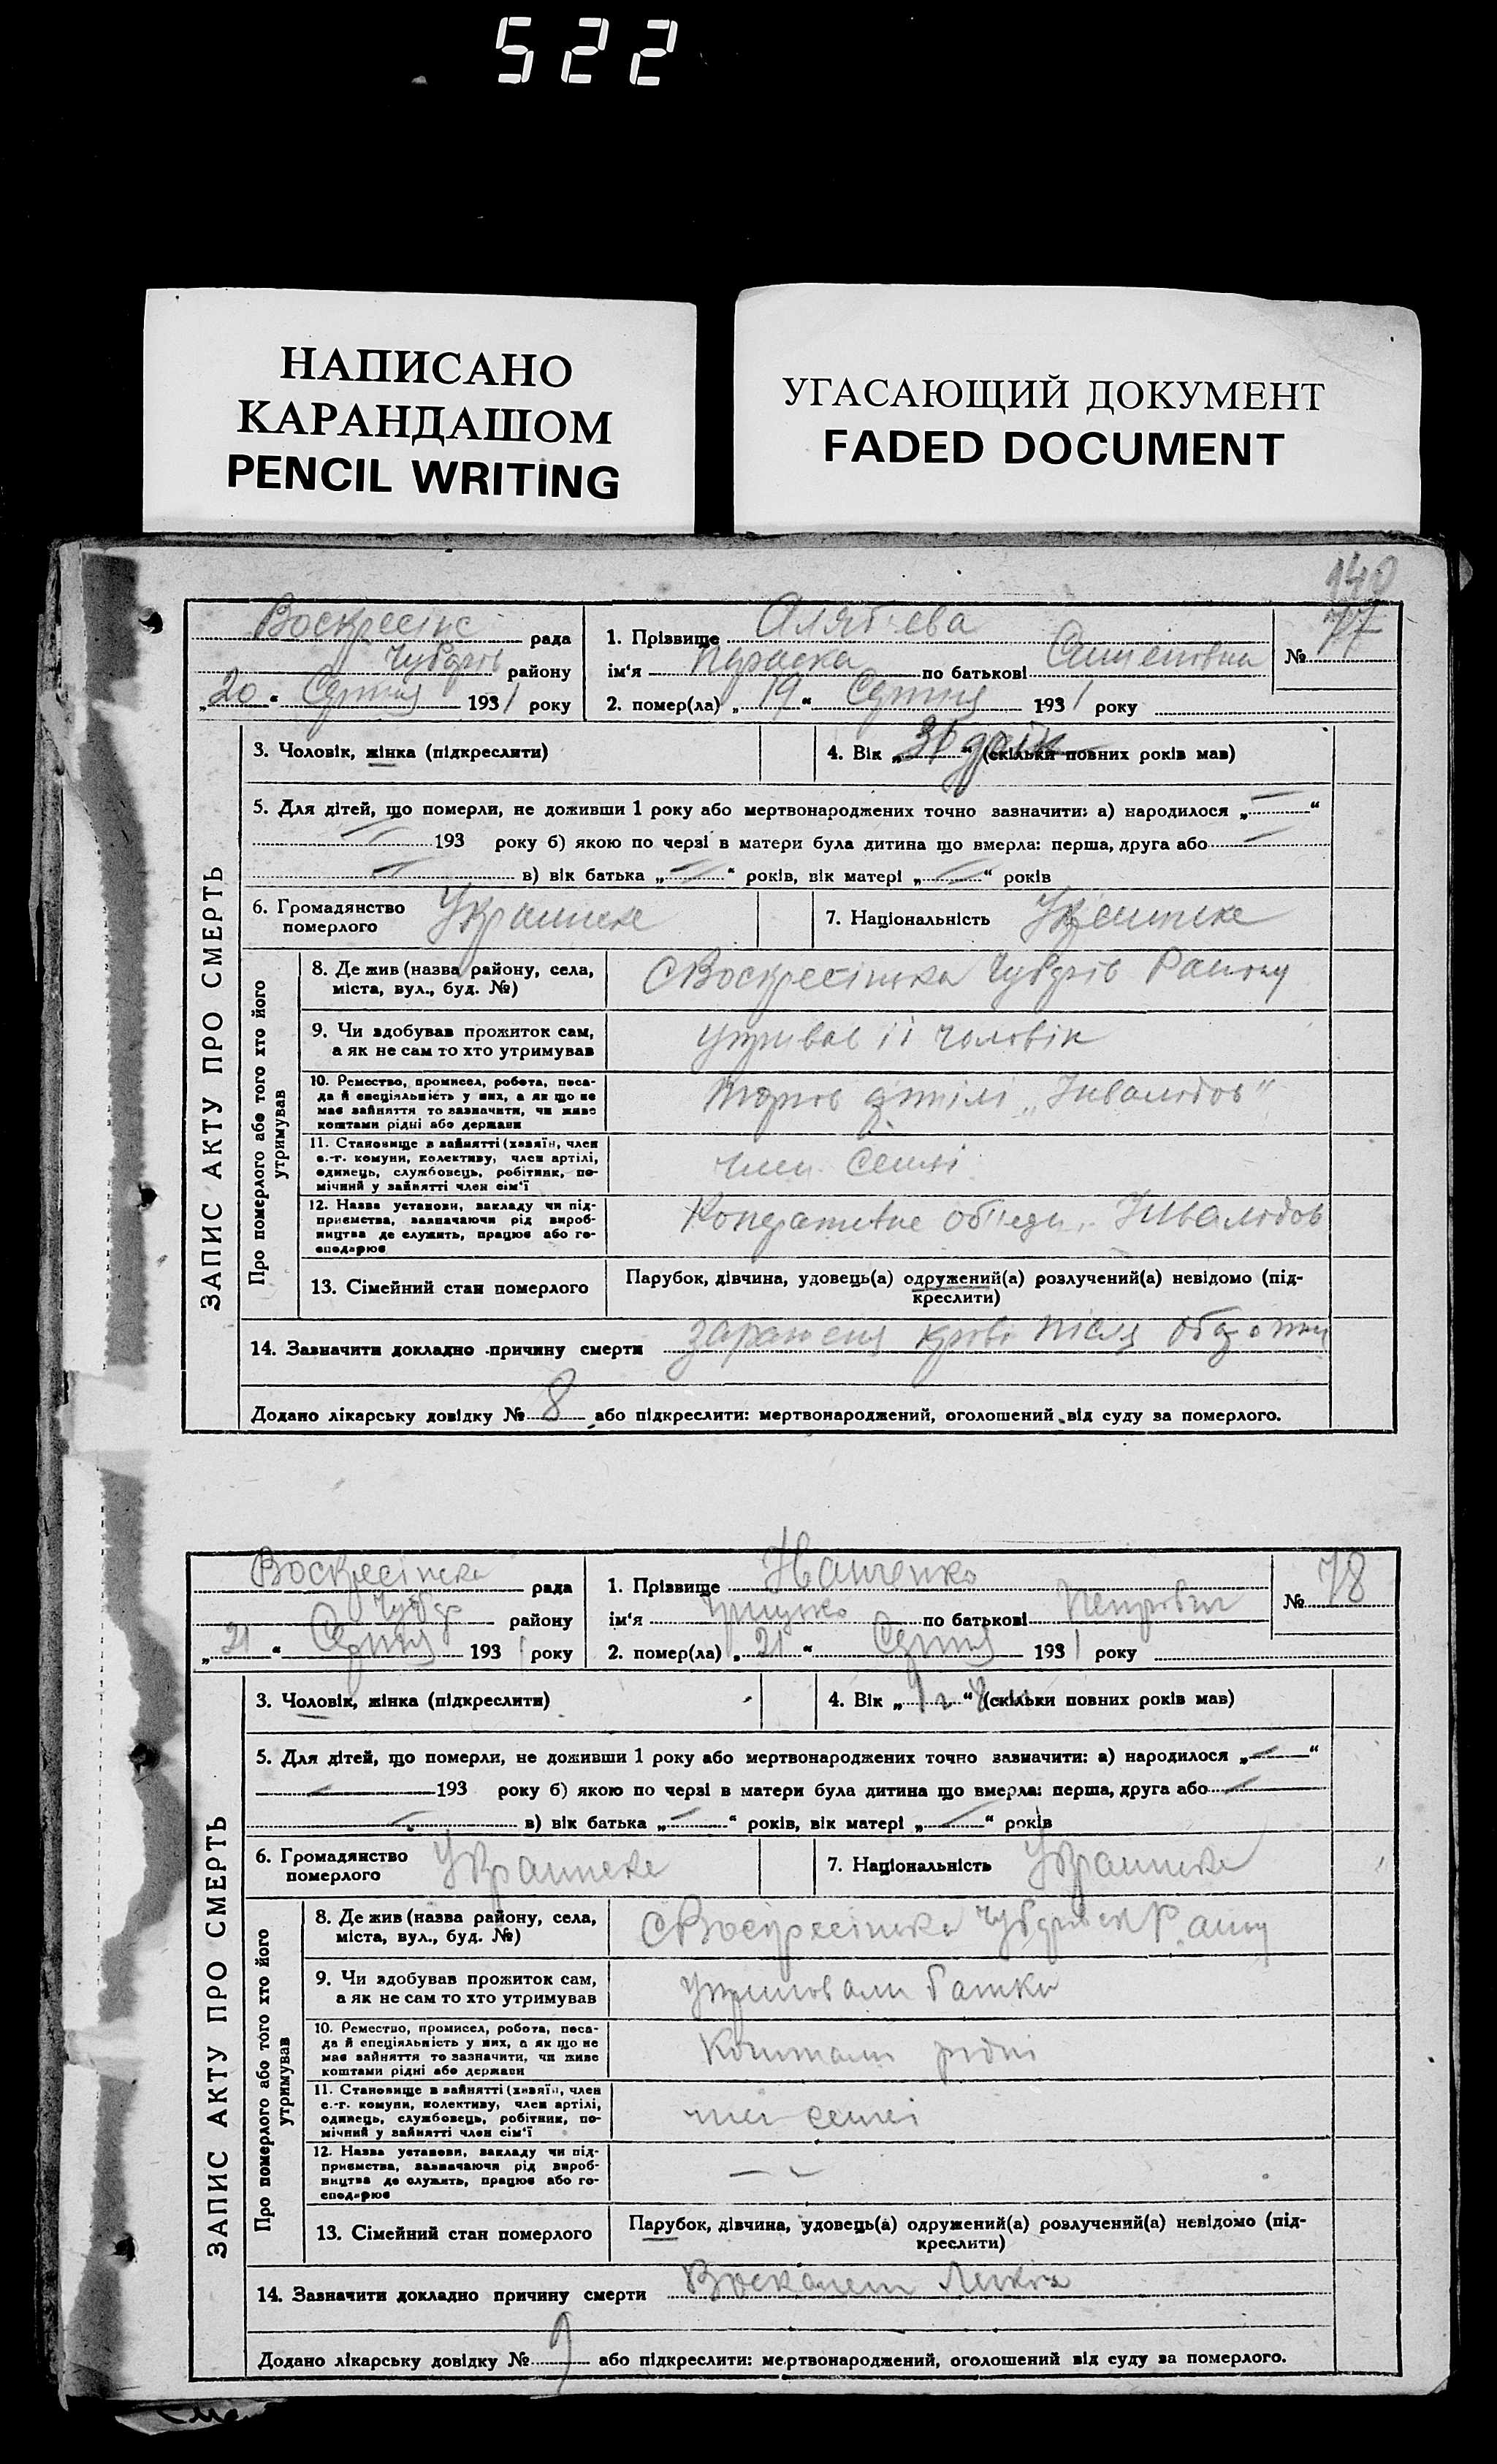 522
НАПИСАНО
КАРАНДАШОМ
PENCIL WRITING
УГАСАЮЩИЙ ДОКУМЕНТ
FADED DOCUMENT
140
ЗАПИС АКТУ ПРО СМЕРТЬ
Воскресінс рада
району
„20“ Серпня 1931 року
1. Прізвище Алябʼєва
ім‘я Параска по батькові Семеновна
№ 77
2. помер(ла) „19“ Серпня 1931 року
3. Чоловік, жінка (підкреслити)
4. Вік „ “ (скільки повних років мав)
5. Для дітей, що померли, не доживши 1 року або мертвонароджених точно зазначити: а) народилося „—“
— 193 року б) якою по черзі в матери була дитина що вмерла: перша, друга або —
— в) вік батька „—“ років, вік матері „—“ років
6. Громадянство померлого Украинске
7. Національність Украинске
Про померлого або того хто його утримував
8. Де жив (назва району, села,
міста, вул., буд. №)
С Воскресінска Района
9. Чи здобував прожиток сам,
а як не сам то хто утримував
утривав її чоловік
10. Ремество, промисел, робота, поса-
да й спеціяльність у них, а як що не
має зайняття то зазначити, чи живе
коштами рідні або держави
артілі „Інвалідов“
11. Становище в зайнятті (хазяїн, член
с.-г. комуни, колективу, член артілі,
одинець, службовець, робітник, по-
мічний у зайнятті член сім‘ї
член Семьї
12. Назва установи, закладу чи під-
приємства, зазначаючи рід вироб-
ництва де служить, працює або го-
сподарює
Коперативне Інвалідов
13. Сімейний стан померлого
Парубок, дівчина, удовець(а) одружений(а) розлучений(а) невідомо (під-
креслити)
14. Зазначити докладно причину смерти зараженя крові після
Додано лікарську довідку № 8 або підкреслити: мертвонароджений, оголошений від суду за померлого.
ЗАПИС АКТУ ПРО СМЕРТЬ
Воскресінска рада
району
„21“ Серпня 1931 року
1. Прізвище Иванченко
ім‘я Грицько по батькові Петрович
№ 78
2. помер(ла) „21“ Серпня 1931 року
3. Чоловік, жінка (підкреслити)
4. Вік „ “ (скільки повних років мав)
5. Для дітей, що померли, не доживши 1 року або мертвонароджених точно зазначити: а) народилося „—“
— 193 року б) якою по черзі в матери була дитина що вмерла: перша, друга або —
— в) вік батька „—“ років, вік матері „—“ років
6. Громадянство померлого Украинске
7. Національність Украинске
Про померлого або того хто його утримував
8. Де жив (назва району, села,
міста, вул., буд. №)
С Воскресінска
9. Чи здобував прожиток сам,
а як не сам то хто утримував
утримовали батки
10. Ремество, промисел, робота, поса-
да й спеціяльність у них, а як що не
має зайняття то зазначити, чи живе
коштами рідні або держави
Коштами рідні
11. Становище в зайнятті (хазяїн, член
с.-г. комуни, колективу, член артілі,
одинець, службовець, робітник, по-
мічний у зайнятті член сім‘ї
член семьї
12. Назва установи, закладу чи під-
приємства, зазначаючи рід вироб-
ництва де служить, працює або го-
сподарює
—
13. Сімейний стан померлого
Парубок, дівчина, удовець(а) одружений(а) розлучений(а) невідомо (під-
креслити)
14. Зазначити докладно причину смерти
Додано лікарську довідку № 9 або підкреслити: мертвонароджений, оголошений від суду за померлого.